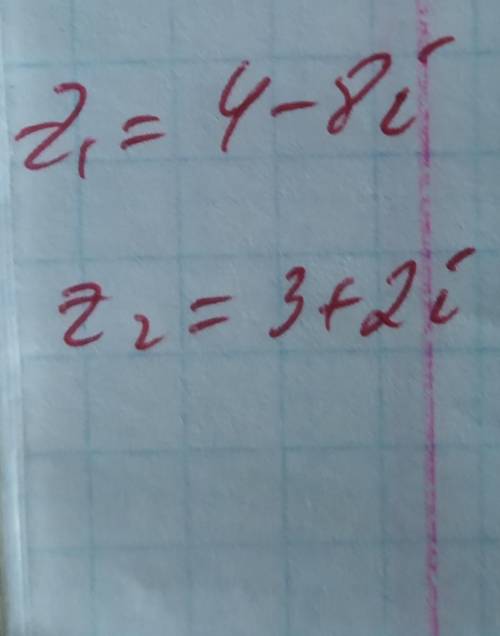 z₁ = 4 - 8i
z₂ = 3 + 2i